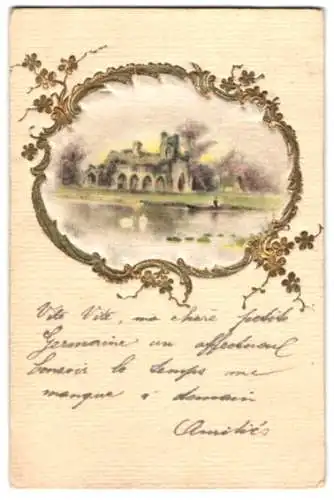 Vite Vite, ma chère petite
Germaine un affectueux
bonsoir le temps me
manque à demain
Amitiés